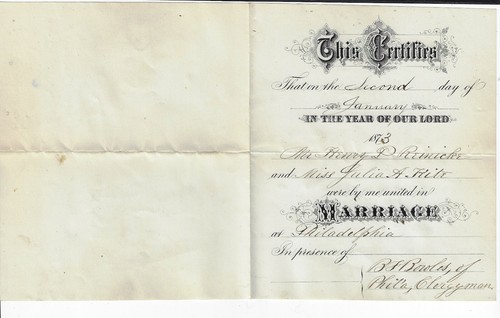 This Certifies
That on the Second day of
January
IN THE YEAR OF OUR LORD
1873
Mr Henry D Reinicke
and Miss Julia A
were by me united in
MARRIAGE
at Philadelphia
In presence of
B F Bowles, of
Phila, Clergyman.